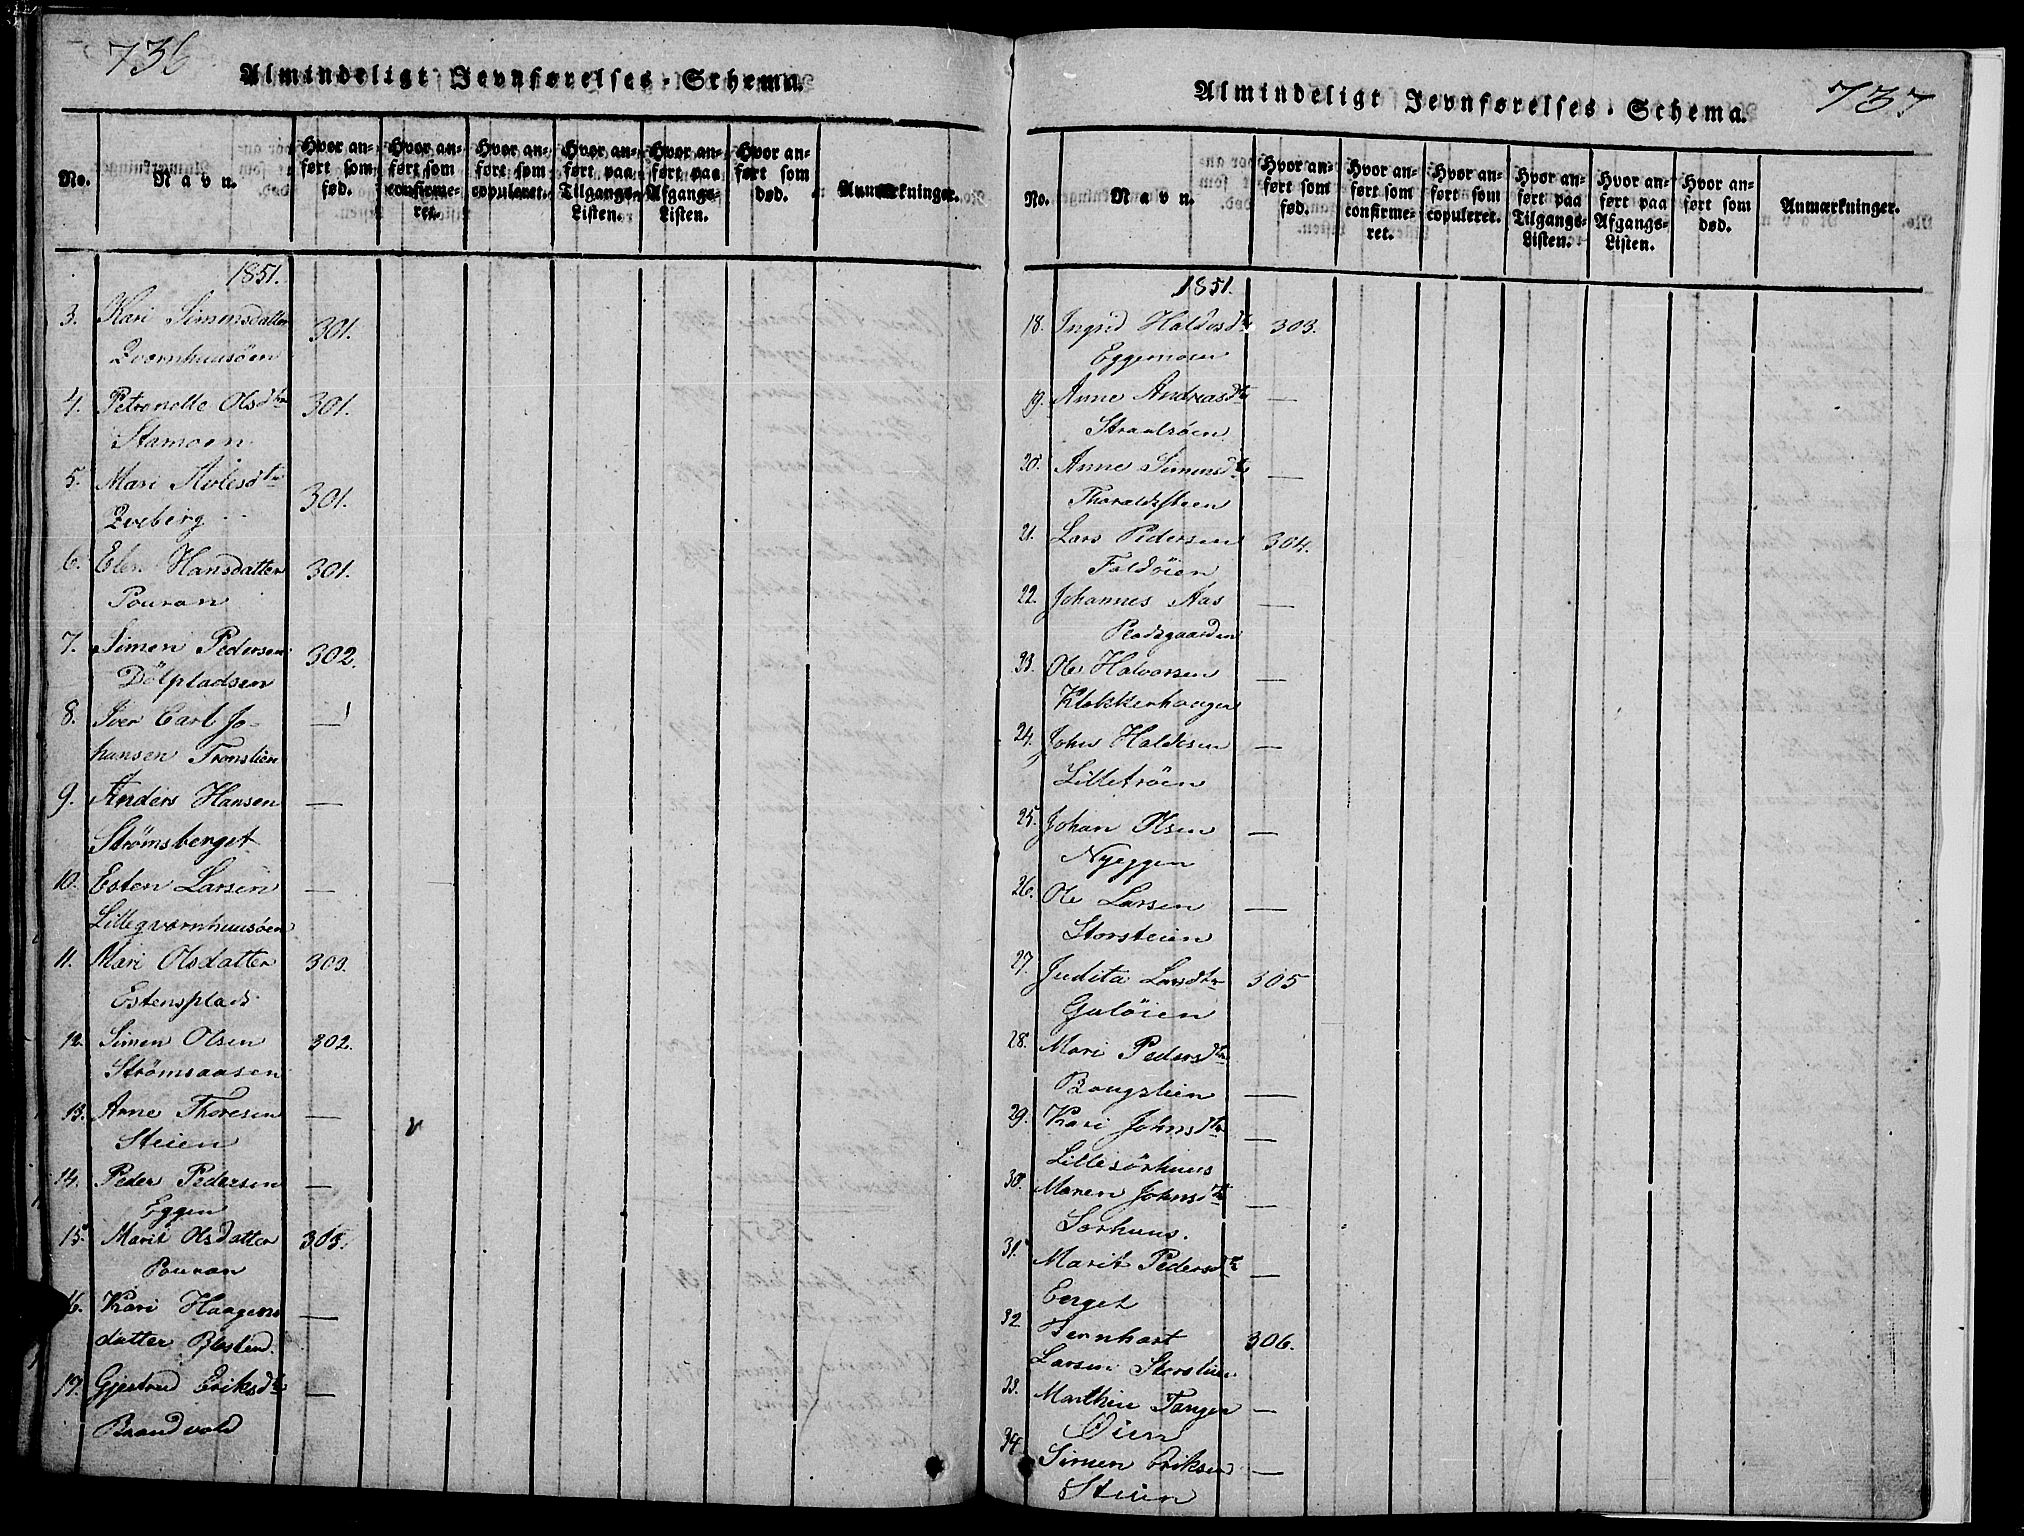 736
Almindeligt Jevnførelses-Schema.
No.
Navn.
Hvor anført som fød.
Hvor anført som confirmeret.
Hvor anført som copuleret.
Hvor anført paa Tilgangs-Listen.
Hvor anført paa Afgangs-Listen.
Hvor anført som død.
Anmærkninger.
1851.
3. Kari Simensdatter 301.
Qvornhuusöen
4. Petronelle Olsdtr 301.
Stamoen
5. Mari dtr 301.
Qveberg
6. Elen Hansdatter 301.
Pouran
7. Simen Pedersen 302.
Dölpladsen
8. Iver Carl Jo- —
hansen Tronslien
9. Anders Hansen —
Strömsberget
10. Esten Larsen —
Lilleqvornhuusöen
11. Mari Olsdatter 303.
Estensplads
12. Simen Olsen 302.
Strömsaasen
13. Arne Thoresen —
Steien
14. Peder Pedersen —
Eggen
15. Marit Olsdatter 303.
Pouran
16. Kari Haagens —
datter
17. Gjertrud Eriksdtr —
Brandvold
737
Almindeligt Jevnførelses-Schema.
No.
Navn.
Hvor anført som fød.
Hvor anført som confirmeret.
Hvor anført som copuleret.
Hvor anført paa Tilgangs-Listen.
Hvor anført paa Afgangs-Listen.
Hvor anført som død.
Anmærkninger.
1851.
18. Ingrid Haldosdtr 303.
Eggemoen
19. Anne Andreasdtr —
Straalsöen
20. Anne Simensdtr —
Thoraldsteen
21. Lars Pedersen 304.
Faldöien
22. Johannes Aas —
Pladsgaarden
23. Ole Halvorsen —
Klokkerhaugen
24. John Haldosen —
Lilletröen
25. Johan Olsen —
Nyeggen
26. Ole Larsen —
Storsteien
27. Judita Larsdtr 305
Galöien
28. Mari Pedersdtr
Bangslien —
29. Kari Johnsdtr —
Lillesörhuus
30. Maren Johnsdtr —
Sörhuus.
31. Marit Pedersdtr —
Enget
32. Bernhart 306.
Larsen Storsteien
33. Marthin Tanger —
Öien
34. Simen Eriksen —
Steien